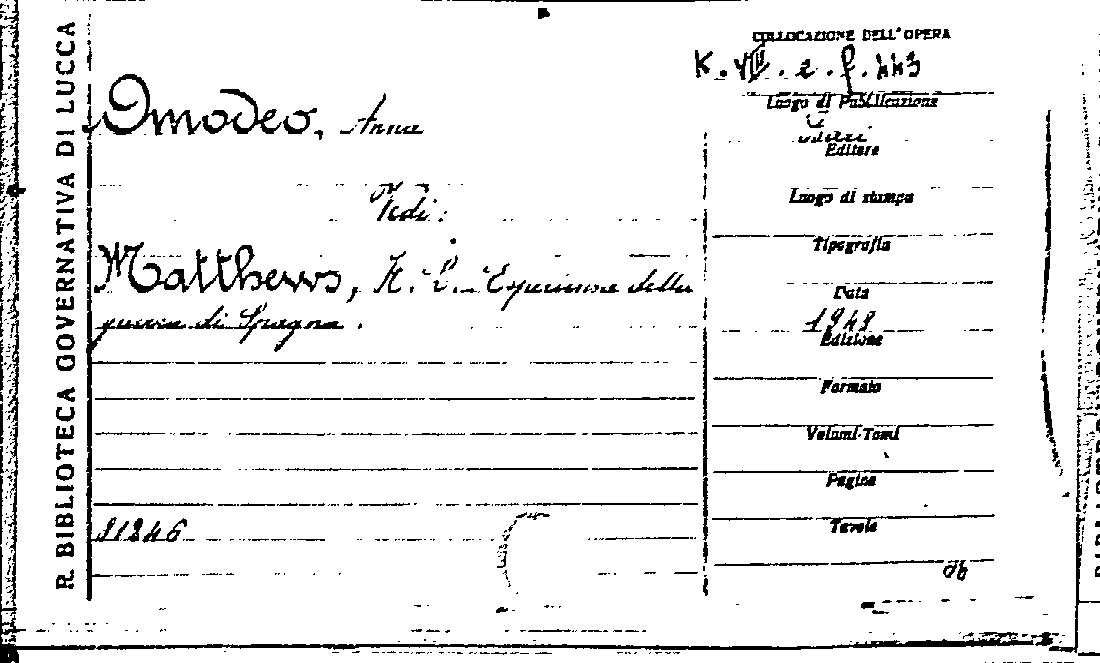 R. BIBLIOTECA GOVERNATIVA DI LUCCA
COLLOCAZIONE DELL'OPERA
K. VIII. 2. f. 443
Omodeo, Anna
Vedi:
Matthews, H. L. Esperienze della
guerra di Spagna.
81246
Luogo di Pubblicazione
Editore
Luogo di stampa
Tipografia
Data
1948
Edizione
Formato
Volumi-Tomi
Pagine
Tavole